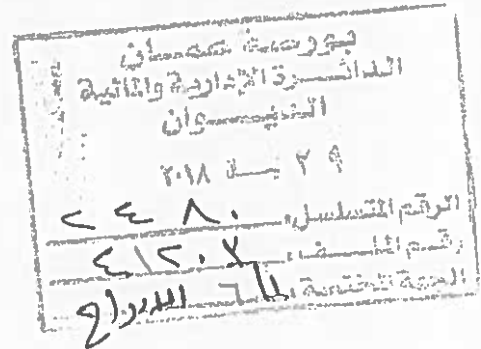 بورصة عمان
الدائرة الإدارية والمالية
الديوان
٢٩ ٢٠١٨
الرقم المتسلسل ٢٤٨٠
رقم الملف ٤١٢٠٧
الجهة المختصة